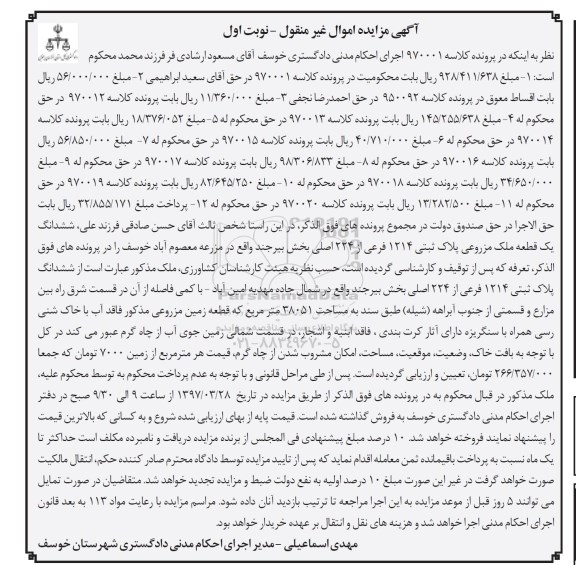 آگهی مزایده اموال غیر منقول - نوبت اول
نظر به اینکه در پرونده کلاسه ۹۷۰۰۰۱ اجرای احکام مدنی دادگستری خوسف آقای مسعود ارشادی فر فرزند محمد محکوم
است: ۱- مبلغ ۹۲۸/۴۱۱/۶۳۸ ریال بابت محکومیت در پرونده کلاسه ۹۷۰۰۰۱ در حق آقای سعید ابراهیمی ۲- مبلغ ۵۶/۰۰۰/۰۰۰ ریال
بابت اقساط معوق در پرونده کلاسه ۹۵۰۰۹۲ در حق احمدرضا نجفی ۳- مبلغ ۱۱/۳۶۰/۰۰۰ ریال بابت پرونده کلاسه ۹۷۰۰۱۲ در حق
محکوم له ۴- مبلغ ۱۴۵/۲۵۵/۶۳۸ ریال بابت پرونده کلاسه ۹۷۰۰۱۳ در حق محکوم له ۵- مبلغ ۱۸/۳۷۶/۰۵۲ ریال بابت پرونده کلاسه
۹۷۰۰۱۴ در حق محکوم له ۶- مبلغ ۴۰/۷۱۰/۰۰۰ ریال بابت پرونده کلاسه ۹۷۰۰۱۵ در حق محکوم له ۷- مبلغ ۵۶/۸۵۰/۰۰۰ ریال
بابت پرونده کلاسه ۹۷۰۰۱۶ در حق محکوم له ۸- مبلغ ۹۸/۳۰۶/۸۳۳ ریال بابت پرونده کلاسه ۹۷۰۰۱۷ در حق محکوم له ۹- مبلغ
۳۴/۶۵۰/۰۰۰ ریال بابت پرونده کلاسه ۹۷۰۰۱۸ در حق محکوم له ۱۰- مبلغ ۸۲/۶۴۵/۲۵۰ ریال بابت پرونده کلاسه ۹۷۰۰۱۹ در حق
محکوم له ۱۱- مبلغ ۱۳/۲۸۲/۵۰۰ ریال بابت پرونده کلاسه ۹۷۰۰۲۰ در حق محکوم له ۱۲- پرداخت مبلغ ۳۲/۸۵۵/۱۷۱ ریال بابت
حق الاجرا در حق صندوق دولت در مجموع پرونده های فوق الذکر، در این راستا شخص ثالث آقای حسن صادقی فرزند علی، ششدانگ
یک قطعه ملک مزروعی پلاک ثبتی ۱۲۱۴ فرعی از ۲۲۴ اصلی بخش بیرجند واقع در مزرعه معصوم آباد خوسف را در پرونده های فوق
الذکر، تعرفه که پس از توقیف و کارشناسی گردیده است، حسب نظریه هیئت کارشناسان کشاورزی، ملک مذکور عبارت است از ششدانگ
پلاک ثبتی ۱۲۱۴ فرعی از ۲۲۴ اصلی بخش بیرجند واقع در شمال جاده مهدیه امین آباد - با کمی فاصله از آن در قسمت شرق راه بین
مزارع و قسمتی از جنوب آبراهه (شیله) طبق سند به مساحت ۳۸۰۵۱ متر مربع که قطعه زمین مزروعی مذکور فاقد آب با خاک شنی
رسی همراه با سنگریزه دارای آثار کرت بندی ، فاقد ابنیه و اشجار، در قسمت شمالی زمین جوی آب از چاه گرم عبور می کند در کل
با توجه به بافت خاک، وضعیت، موقعیت، مساحت، امکان مشروب شدن از چاه گرم، قیمت هر مترمربع از زمین ۷۰۰۰ تومان که جمعا
۲۶۶/۳۵۷/۰۰۰ تومان، تعیین و ارزیابی گردیده است. پس از طی مراحل قانونی و با توجه به عدم پرداخت محکوم به توسط محکوم علیه،
ملک مذکور در قبال محکوم به در پرونده های فوق الذکر از طریق مزایده در تاریخ ۱۳۹۷/۰۳/۲۸ از ساعت ۹ الی ۹/۳۰ صبح در دفتر
اجرای احکام مدنی دادگستری خوسف به فروش گذاشته شده است. قیمت پایه از بهای ارزیابی شده شروع و به کسانی که بالاترین قیمت
را پیشنهاد نمایند فروخته خواهد شد. ۱۰ درصد مبلغ پیشنهادی فی المجلس از برنده مزایده دریافت و نامبرده مکلف است حداکثر تا
یک ماه نسبت به پرداخت باقیمانده ثمن معامله اقدام نماید که پس از تایید مزایده توسط دادگاه محترم صادر کننده حکم، انتقال مالکیت
صورت خواهد گرفت در غیر این صورت مبلغ ۱۰ درصد اولیه به نفع دولت ضبط و مزایده تجدید خواهد شد. متقاضیان در صورت تمایل
می توانند ۵ روز قبل از موعد مزایده به این اجرا مراجعه تا ترتیب بازدید آنان داده شود. مراسم مزایده با رعایت مواد ۱۱۳ به بعد قانون
اجرای احکام مدنی اجرا خواهد شد و هزینه های نقل و انتقال بر عهده خریدار خواهد بود.
مهدی اسماعیلی - مدیر اجرای احکام مدنی دادگستری شهرستان خوسف
ParsNamadData
۰۲۱-۸۸۳۴۹۶۷۰-۵